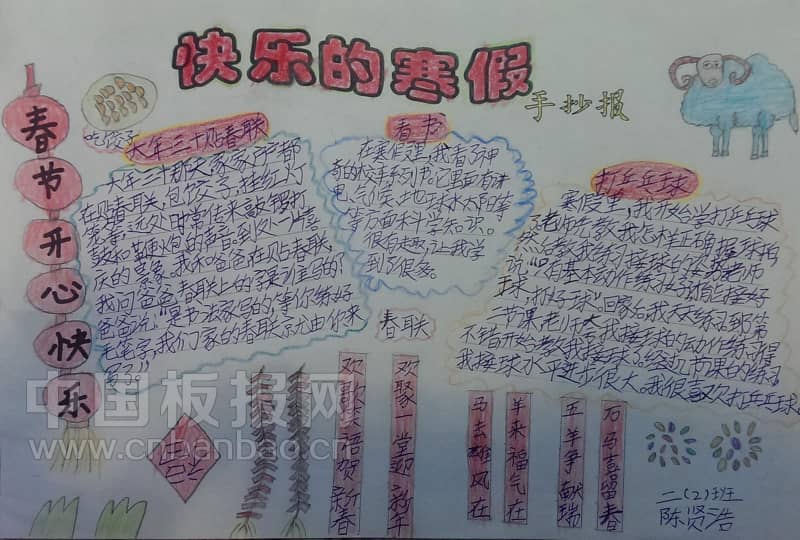 快乐的寒假
手抄报
春节开心快乐
吃饺子
大年三十贴春联
大年三十那天家家户户都
在贴春联,包饺子,挂红灯
笼等,远处时常传来敲锣打
鼓和鞭炮的声音,到处一片喜
庆的景象。我和爸爸在贴春联,
我问爸爸春联上的字是谁写的?
爸爸说:“是书法家写的,等你练好
毛笔字,我们家的春联就由你来
写了!”
看书
在寒假里,我看了神
奇的校车系列书。它里面有讲
电、气候、地球、水、太阳等
等方面科学知识。
很有趣,让我学
到了很多。
打乒乓球
寒假里,我开始学打乒乓球
老师先教我怎样正确握球拍
说:“只有基本动作练好了才能接好
球,打好球”回家后我天天练习到第
二节课,老师
不错开始教我接球了。经过几节课的练习
我接球水平进步很大。我很喜欢打乒乓球。
春联
欢歌笑语贺新春
欢聚一堂迎新年
马去雄风在
羊来福气在
五羊争献瑞
石马喜留春
二(2)班
陈贤浩
中国板报网
www.cnbanbao.cn